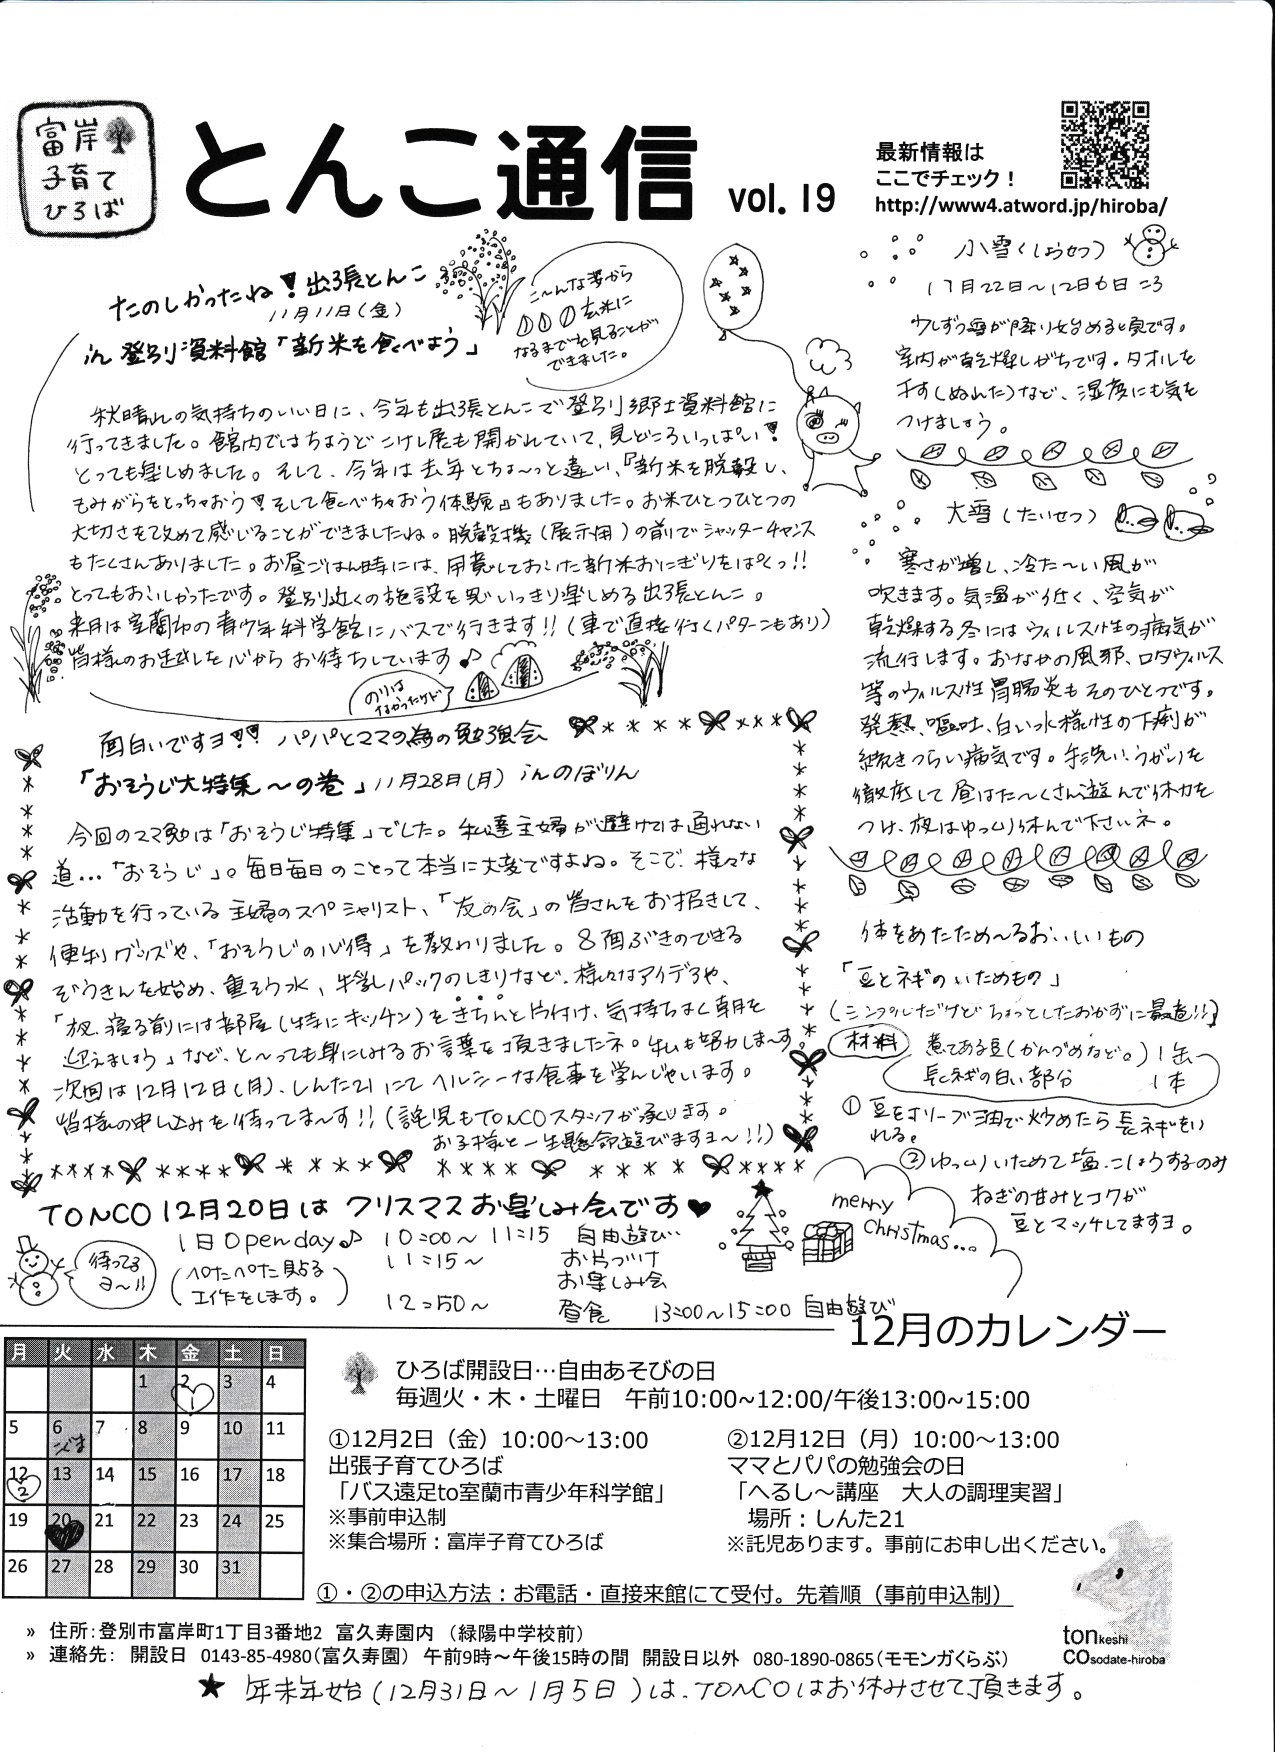 富岸
子育て
ひろば
とんこ通信 vol. 19
最新情報は
ここでチェック！
http://www4.atword.jp/hiroba/
たのしかったね！出張とんこ
11月11日(金)
in 登別資料館「新米を食べよう」
こ〜んな姿から
玄米に
なるまでを見ることが
できました。
秋晴れの気持ちのいい日に、今年も出張とんこで登別郷土資料館に
行ってきました。館内ではちょうどこけし展も開かれていて、見どころいっぱい！
とっても楽しめました。そして、今年は去年とちょ〜っと違い、『新米を脱穀し、
もみがらをとっちゃおう！そして食べちゃおう体験』もありました。お米ひとつひとつの
大切さを改めて感じることができましたね。脱穀機(展示用)の前でシャッターチャンス
もたくさんありました。お昼ごはん時には、用意しておいた新米おにぎりをぱくっ!!
とってもおいしかったです。登別近くの施設を思いっきり楽しめる出張とんこ。
来月は室蘭市の青少年科学館にバスで行きます!!(車で直接行くパターンもあり)
皆様のお越しを心からお待ちしています♪
のりは
なかったけど
面白いですヨ!! パパとママの為の勉強会
「おそうじ大特集〜の巻」11月28日(月) inのぼりん
今回のママ勉は「おそうじ特集」でした。私達主婦が避けては通れない
道…「おそうじ」。毎日毎日のことって本当に大変ですよね。そこで、様々な
活動を行っている主婦のスペシャリスト、「友の会」の皆さんをお招きして、
便利グッズや、「おそうじの心得」を教わりました。8面ぶきのできる
ぞうきんを始め、重そう水、牛乳パックのしきりなど、様々なアイデアや、
「夜、寝る前には部屋(特にキッチン)をきちんと片付け、気持ちよく朝を
迎えましょう」など、と〜っても身にしみるお言葉を頂きましたネ。私も努力しま〜す。
次回は12月12日(月)、しんた21にてヘルシーな食事を学んじゃいます。
皆様の申し込みを待ってま〜す!!(託児もTONCOスタッフが承ります。
お子様と一生懸命遊びますヨ〜!!)
小雪(しょうせつ)
11月22日〜12月6日ころ
少しずつ雪が降り始める頃です。
室内が乾燥しがちです。タオルを
干す(ぬれた)など、湿度にも気を
つけましょう。
大雪(たいせつ)
寒さが増し、冷た〜い風が
吹きます。気温が低く、空気が
乾燥する冬にはウィルス性の病気が
流行します。おなかの風邪、ロタウィルス
等のウィルス性胃腸炎もそのひとつです。
発熱、嘔吐、白い水様性の下痢が
続きつらい病気です。手洗い、うがいを
徹底して昼はた〜くさん遊んで体力を
つけ、夜はゆっくり休んで下さいネ。
体をあたため〜るおいしいもの
「豆とネギのいためもの」
(シンプルだけどちょっとしたおかずに最適!!)
材料 煮てある豆(かんづめなど。) 1缶
長ネギの白い部分 1本
① 豆をオリーブ油で炒めたら長ネギもい
れる。
② ゆっくりいためて塩・こしょうするのみ
ねぎの甘みとコクが
豆とマッチしてますヨ。
merry
christmas...
TONCO 12月20日は クリスマスお楽しみ会です♥
待ってる
ヨ〜!!
1日Open day♪ 10:00〜11:15 自由遊び
(ぺたぺた貼る
工作をします。)
11:15〜 お片づけ
お楽しみ会
12:50〜 昼食 13:00〜15:00 自由遊び
12月のカレンダー
月 火 水 木 金 土 日
1 2 3 4
1
5 6 7 8 9 10 11
12 13 14 15 16 17 18
2
19 20 21 22 23 24 25
26 27 28 29 30 31
ひろば開設日…自由あそびの日
毎週火・木・土曜日 午前10:00~12:00/午後13:00~15:00
①12月2日（金）10:00～13:00
出張子育てひろば
「バス遠足to室蘭市青少年科学館」
※事前申込制
※集合場所：富岸子育てひろば
②12月12日（月）10:00～13:00
ママとパパの勉強会の日
「へるし～講座　大人の調理実習」
場所：しんた21
※託児あります。事前にお申し出ください。
①・②の申込方法：お電話・直接来館にて受付。先着順（事前申込制）
tonkeshi
COsodate-hiroba
» 住所：登別市富岸町1丁目3番地2 富久寿園内 （緑陽中学校前）
» 連絡先： 開設日 0143-85-4980（富久寿園） 午前9時～午後15時の間 開設日以外 080-1890-0865（モモンガくらぶ）
★ 年末年始(12月31日〜1月5日)は、TONCOはお休みさせて頂きます。